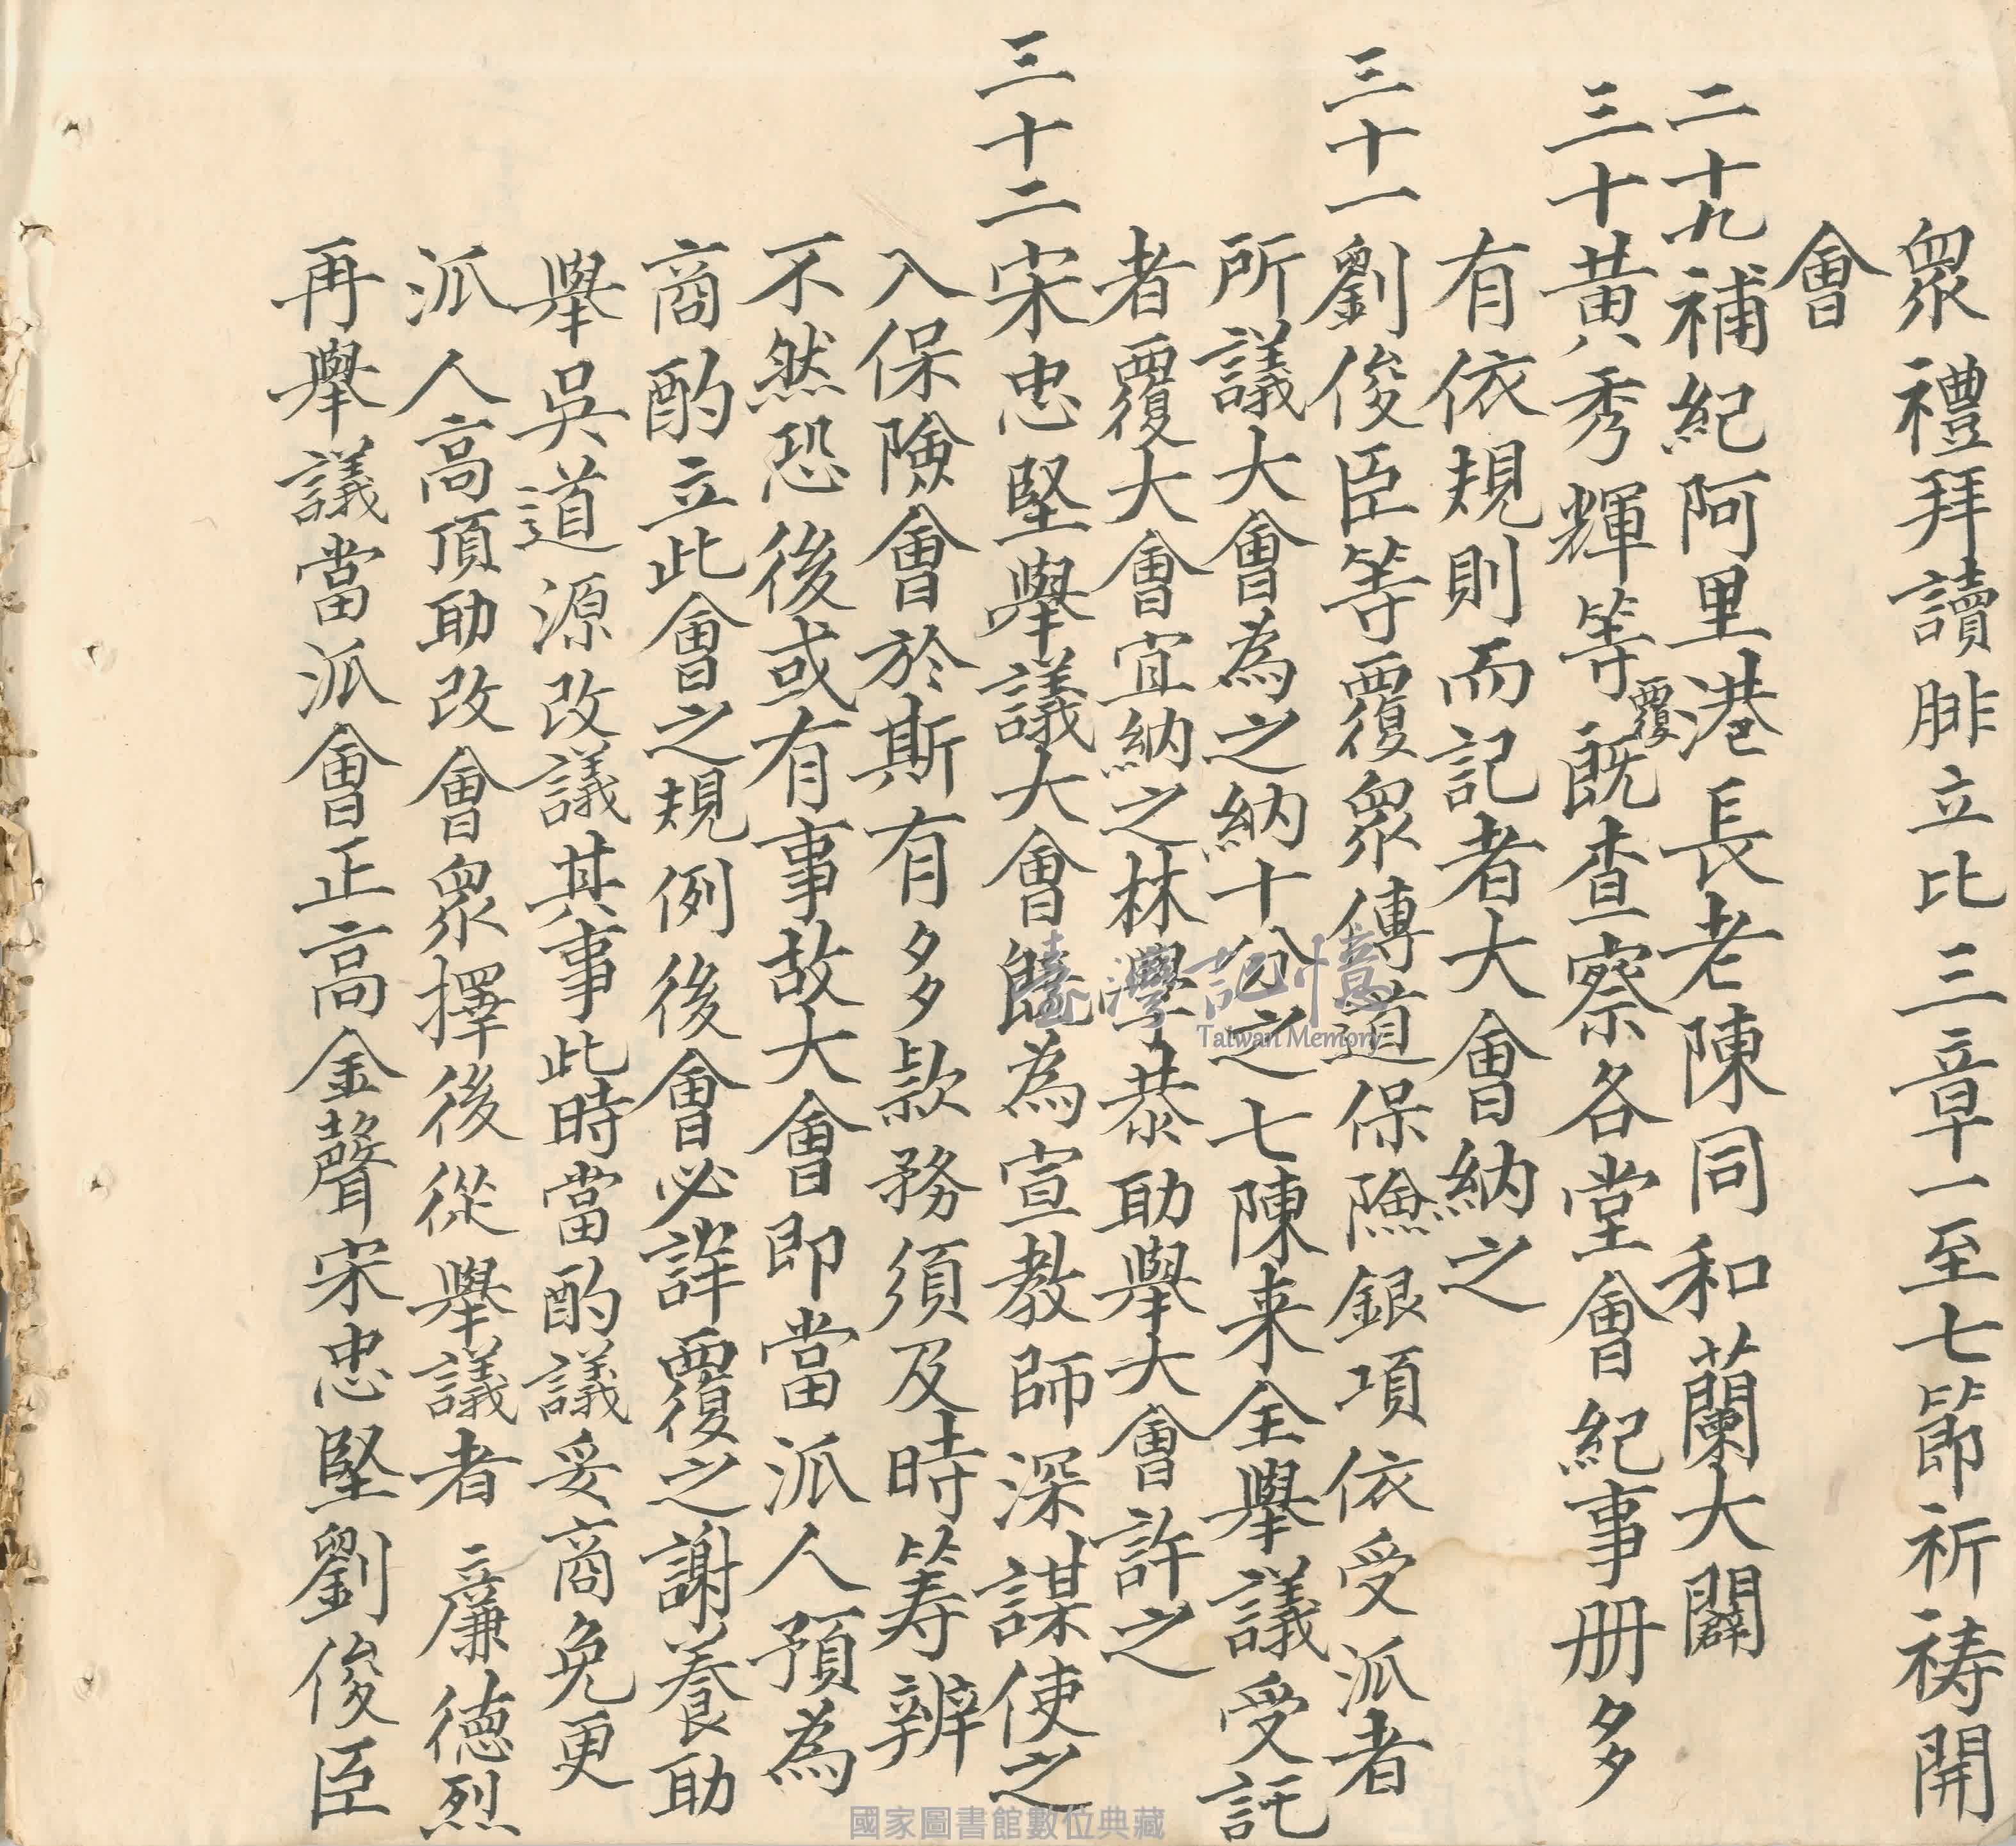 眾禮拜讀腓立比三章一至七節祈祷開
會
二十九補紀阿里港長老陳同和蘭大闢
三十黄秀輝等覆既查察各堂會紀事册多
有依規則而記者大會納之
三十一劉俊臣等覆眾傳道保險銀項依受派者
所議大會為之納十分之七陳来全舉議受託
者覆大會宜納之林學恭助舉大會許之
三十二宋忠堅舉議大會既為宣教師深謀使之
入保險會於斯有多款務須及時筹辨
不然恐後或有事故大會即當派人預為
商酌立此會之規例後會必詳覆之謝養助
舉吳道源改議其事此時當酌議妥商免更
派人高頂助改會眾擇後從舉議者 廉德烈
再舉議當派會正高金聲宋忠堅劉俊臣
臺灣記憶
Taiwan Memory
國家圖書館數位典藏